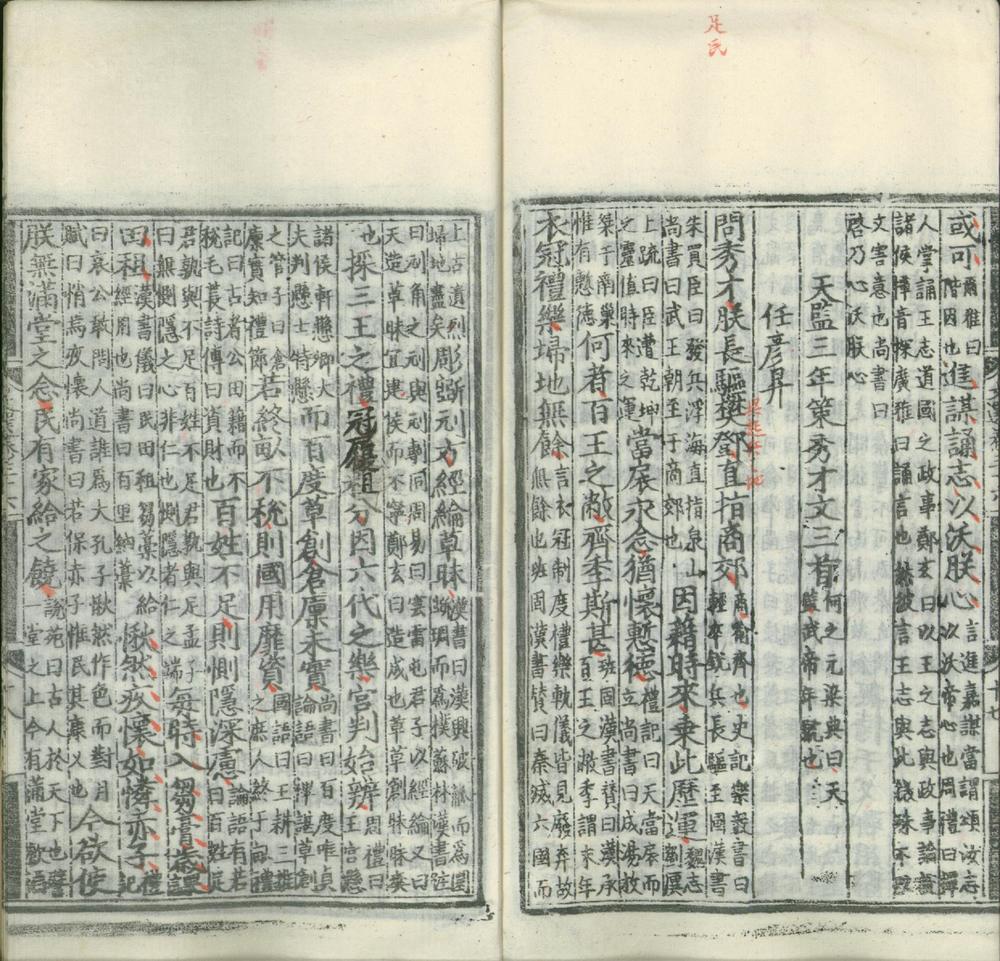 是
氏
或可爾雅曰階因也進謀誦志以沃朕心言進嘉謀當謂頌汝志以沃帝心也周禮曰撢
人掌誦王志道國之政事鄭玄曰以王之志與政事論說
諸侯撢音探廣雅曰誦言也然彼言王志與此微殊不
文害意也尚書曰
啓乃心沃朕心
天監三年策秀才文三首何之元梁典曰天監武帝年號也
任彥昇
問秀才朕長驅樊鄧直指商郊商郊齊也史記樂毅書曰輕卒銳兵長驅至國漢書
朱買臣曰發兵浮海直指泉山
尚書曰武王朝至于商郊也因藉時來乘此歷運魏志劉廙
上疏曰臣遭乾坤之靈值時來之運當扆永念猶懷慙德禮記曰天子當扆而立尚書曰成湯放
桀于南巢惟有慙德何者百王之敝齊季斯甚班固漢書贊曰漢承百王之敝季謂末年
衣冠禮樂埽地無餘言衣冠制度禮樂軌儀皆見廢弃故無餘也班固漢書贊曰秦滅六國而
上古遺烈埽地盡矣彫斲刓方經綸草昧漢書曰漢興破觚而爲圜斲琱而爲樸蘇林漢書注
曰刓角之刓與刓剸同周易曰雲雷屯君子以經綸又曰
天造草昧宜建侯而不寧鄭玄曰造成也草草創昧昧爽
也採三王之禮冠履粗分因六代之樂宮判始辨周禮曰王宮懸
諸侯軒懸卿大夫判懸士特懸而百度草創倉廩未實尚書曰百度唯貞論語曰裨諶草創
之管子曰倉廩實知禮節若終畝不稅則國用靡資國語曰王耕一墢之庶人終于千畝禮
記曰古者公田籍而不稅毛萇詩傳曰資財也百姓不足則惻隱深慮論語有若曰百姓足
君孰與不足百姓不足君孰與足孟子
曰無惻隱之心非仁也惻隱者仁之端每時入芻藁歲課
田租漢書儀曰民田租芻藁以給經用也尚書曰百里納藁愀然疚懷如憐赤子禮記
曰哀公敢問人道誰爲大孔子愀然作色而對月
賦曰悄焉疚懷尚書曰若保赤子惟民其康乂也今欲使
朕無滿堂之念民有家給之饒說苑曰古人於天下也譬一堂之上今有滿堂飲酒